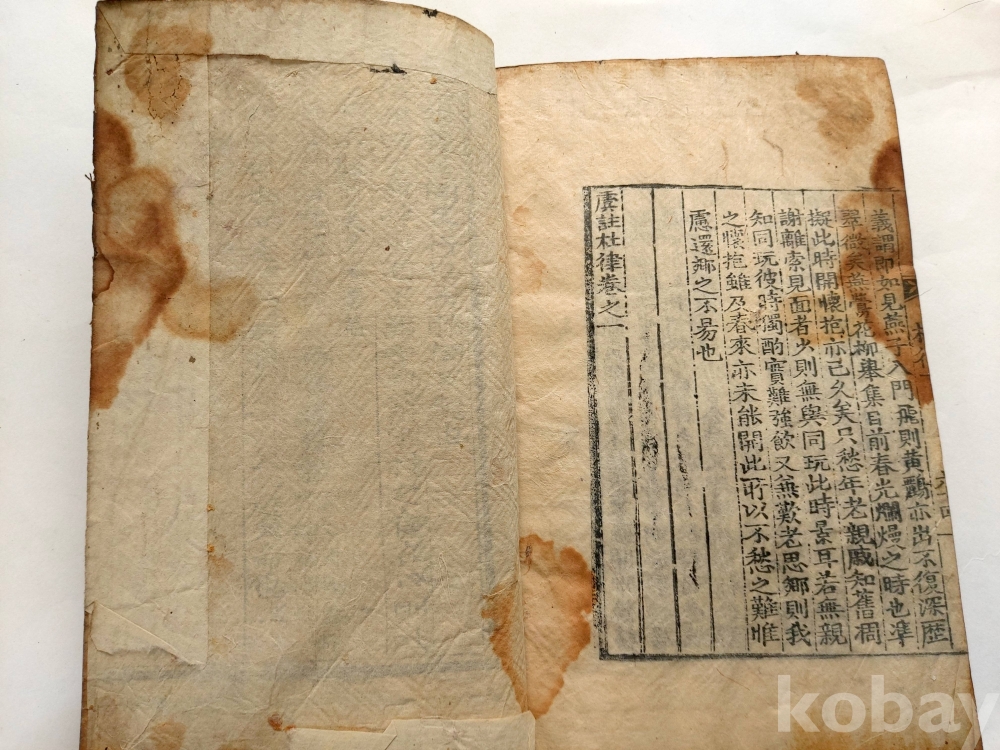 義謂即如見燕子入門飛則黃鸝亦出不復深歷
翠微矣無賞花柳畢集目前春光爛熳之時也準
擬此時開懷抱亦已久矣只愁年老親戚知舊凋
謝離索見面者少則無與同玩此時景耳若無親
知同玩彼時獨酌實難強飲又無歎老思鄉則我
之懷抱雖及春來亦未能開此所以不愁之難惟
慮還鄉之不易也
虞註杜律卷之一
kobay